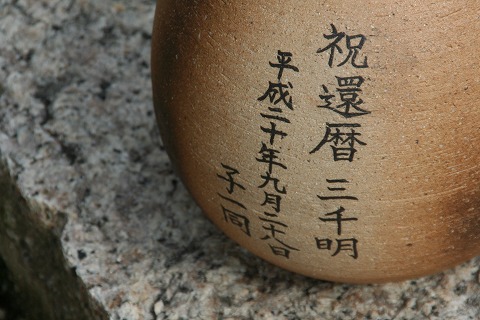 祝還暦 三千明
平成二十年九月二十八日
子一同